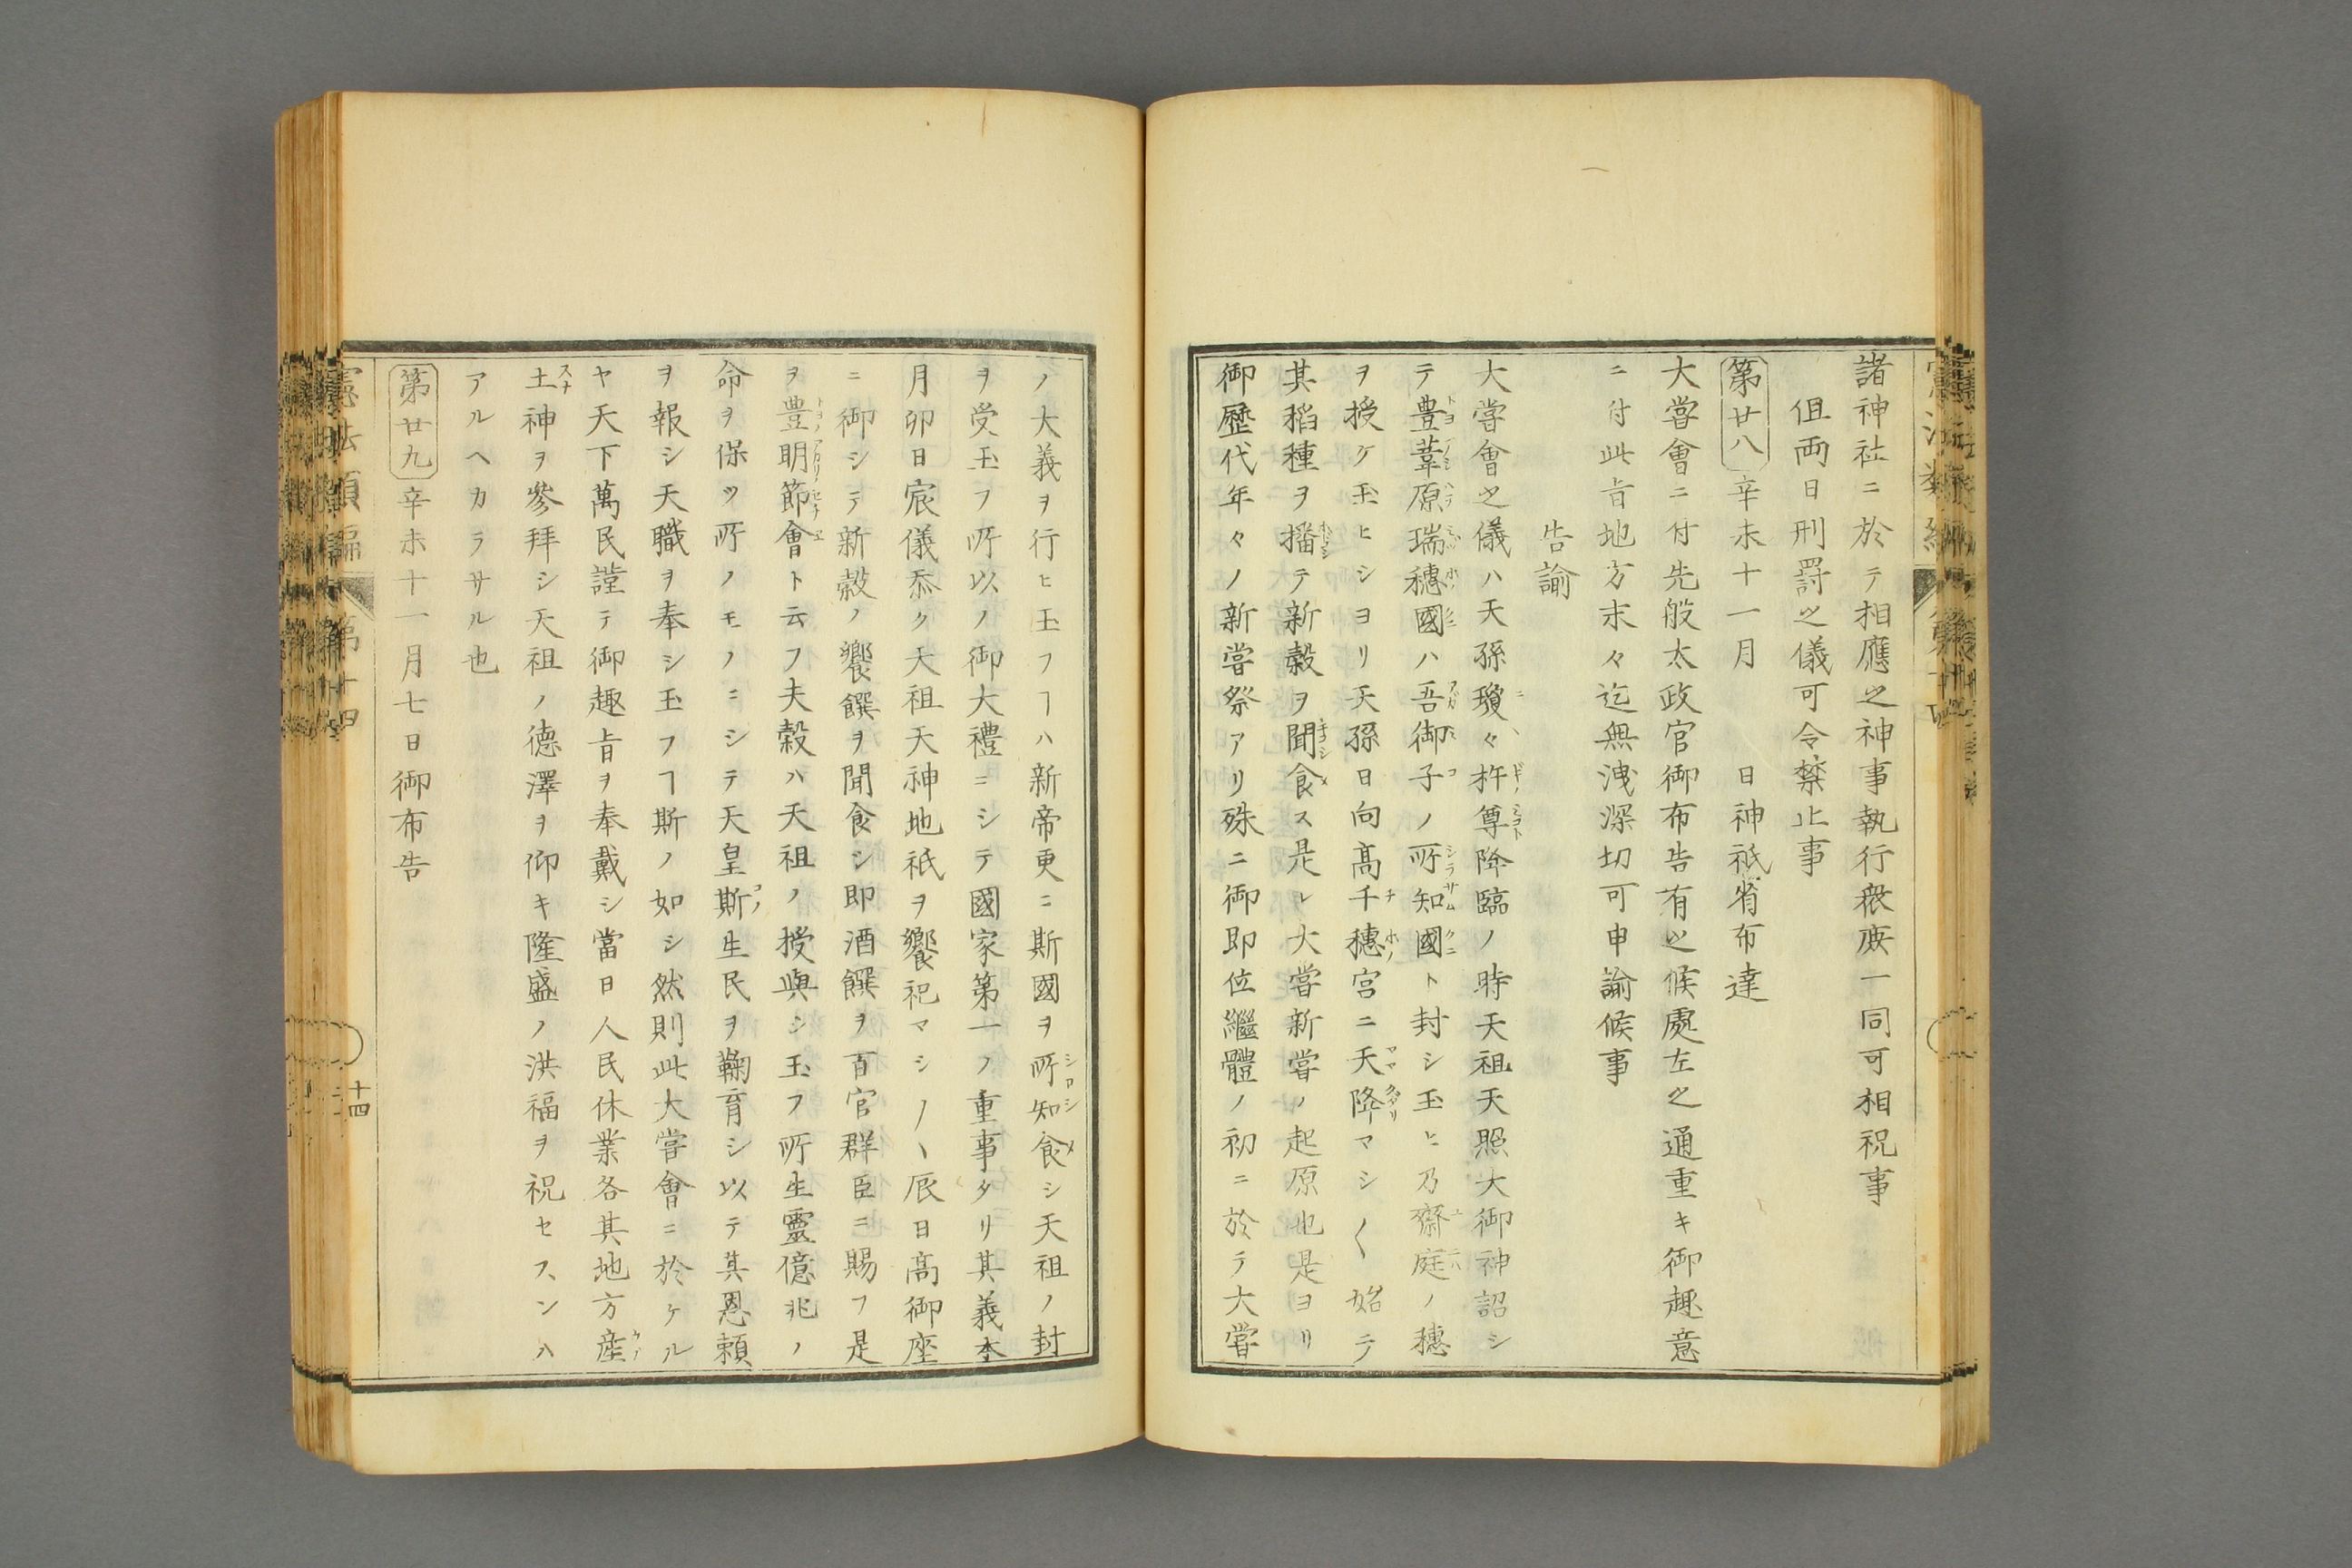 諸神社ニ於テ相應之神事執行衆庶一同可相祝事
但両日刑罸之儀可令禁止事
第廿八 辛未十一月 日神祇省布達
大嘗會ニ付先般太政官御布告有之候處左之通重キ御趣意
ニ付此旨地方末々迄無洩深切可申諭候事
告諭
大嘗會之儀ハ天孫瓊々杵尊降臨ノ時天祖天照大御神詔シ
テ豊葦原瑞穗國ハ吾御子ノ所知國ト封シ玉ヒ乃齋庭ノ穗
ヲ授ケ玉ヒシヨリ天孫日向高千穗宮ニ天降マシ〱始テ
其稻種ヲ播テ新穀ヲ聞食ス是レ大嘗新嘗ノ起原也是ヨリ
御歷代年々ノ新嘗祭アリ殊ニ御即位繼體ノ初ニ於テ大嘗
ノ大義ヲ行ヒ玉フヿハ新帝更ニ斯國ヲ所知食シ天祖ノ封
ヲ受玉フ所以ノ御大禮ニシテ國家第一ノ重事タリ其義本
月卯日宸儀忝ク天祖天神地祇ヲ饗祀マシ〱辰日高御座
ニ御シテ新穀ノ饗饌ヲ聞食シ即酒饌ヲ百官群臣ニ賜フ是
ヲ豊明節會ト云フ夫穀ハ天祖ノ授與シ玉フ所生靈億兆ノ
命ヲ保ツ所ノモノニシテ天皇斯生民ヲ鞠育シ以テ其恩頼
ヲ報シ天職ヲ奉シ玉フヿ斯ノ如シ然則此大嘗會ニ於ケル
ヤ天下萬民謹テ御趣旨ヲ奉戴シ當日人民休業各其地方産
土神ヲ參拜シ天祖ノ德澤ヲ仰キ隆盛ノ洪福ヲ祝セスンハ
アルヘカラサル也
第廿九 辛未十一月七日御布告
憲法類編 第十四
十四